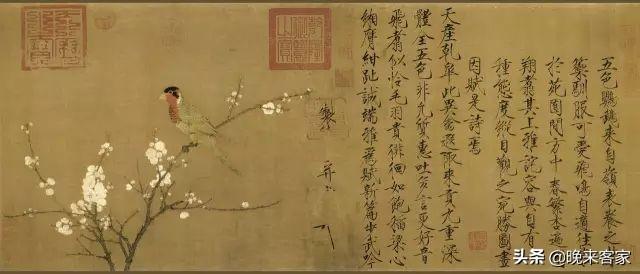 五色鸚鵡來自嶺表養之
籞馴服可愛飛鳴自適往
於苑囿間方中春繁杏遍
翔翥其上雅詫容與自有
種態度縱目觀之宛勝圖畫
因賦是詩焉
天產乾皋此異禽遐陬來貢九重深
體全五色非凡質惠吐多言更好音
飛翥似憐毛羽貴徘徊如飽稻粱心
緗膺紺趾誠端雅為賦新篇步武吟
頭条 @晚来客家